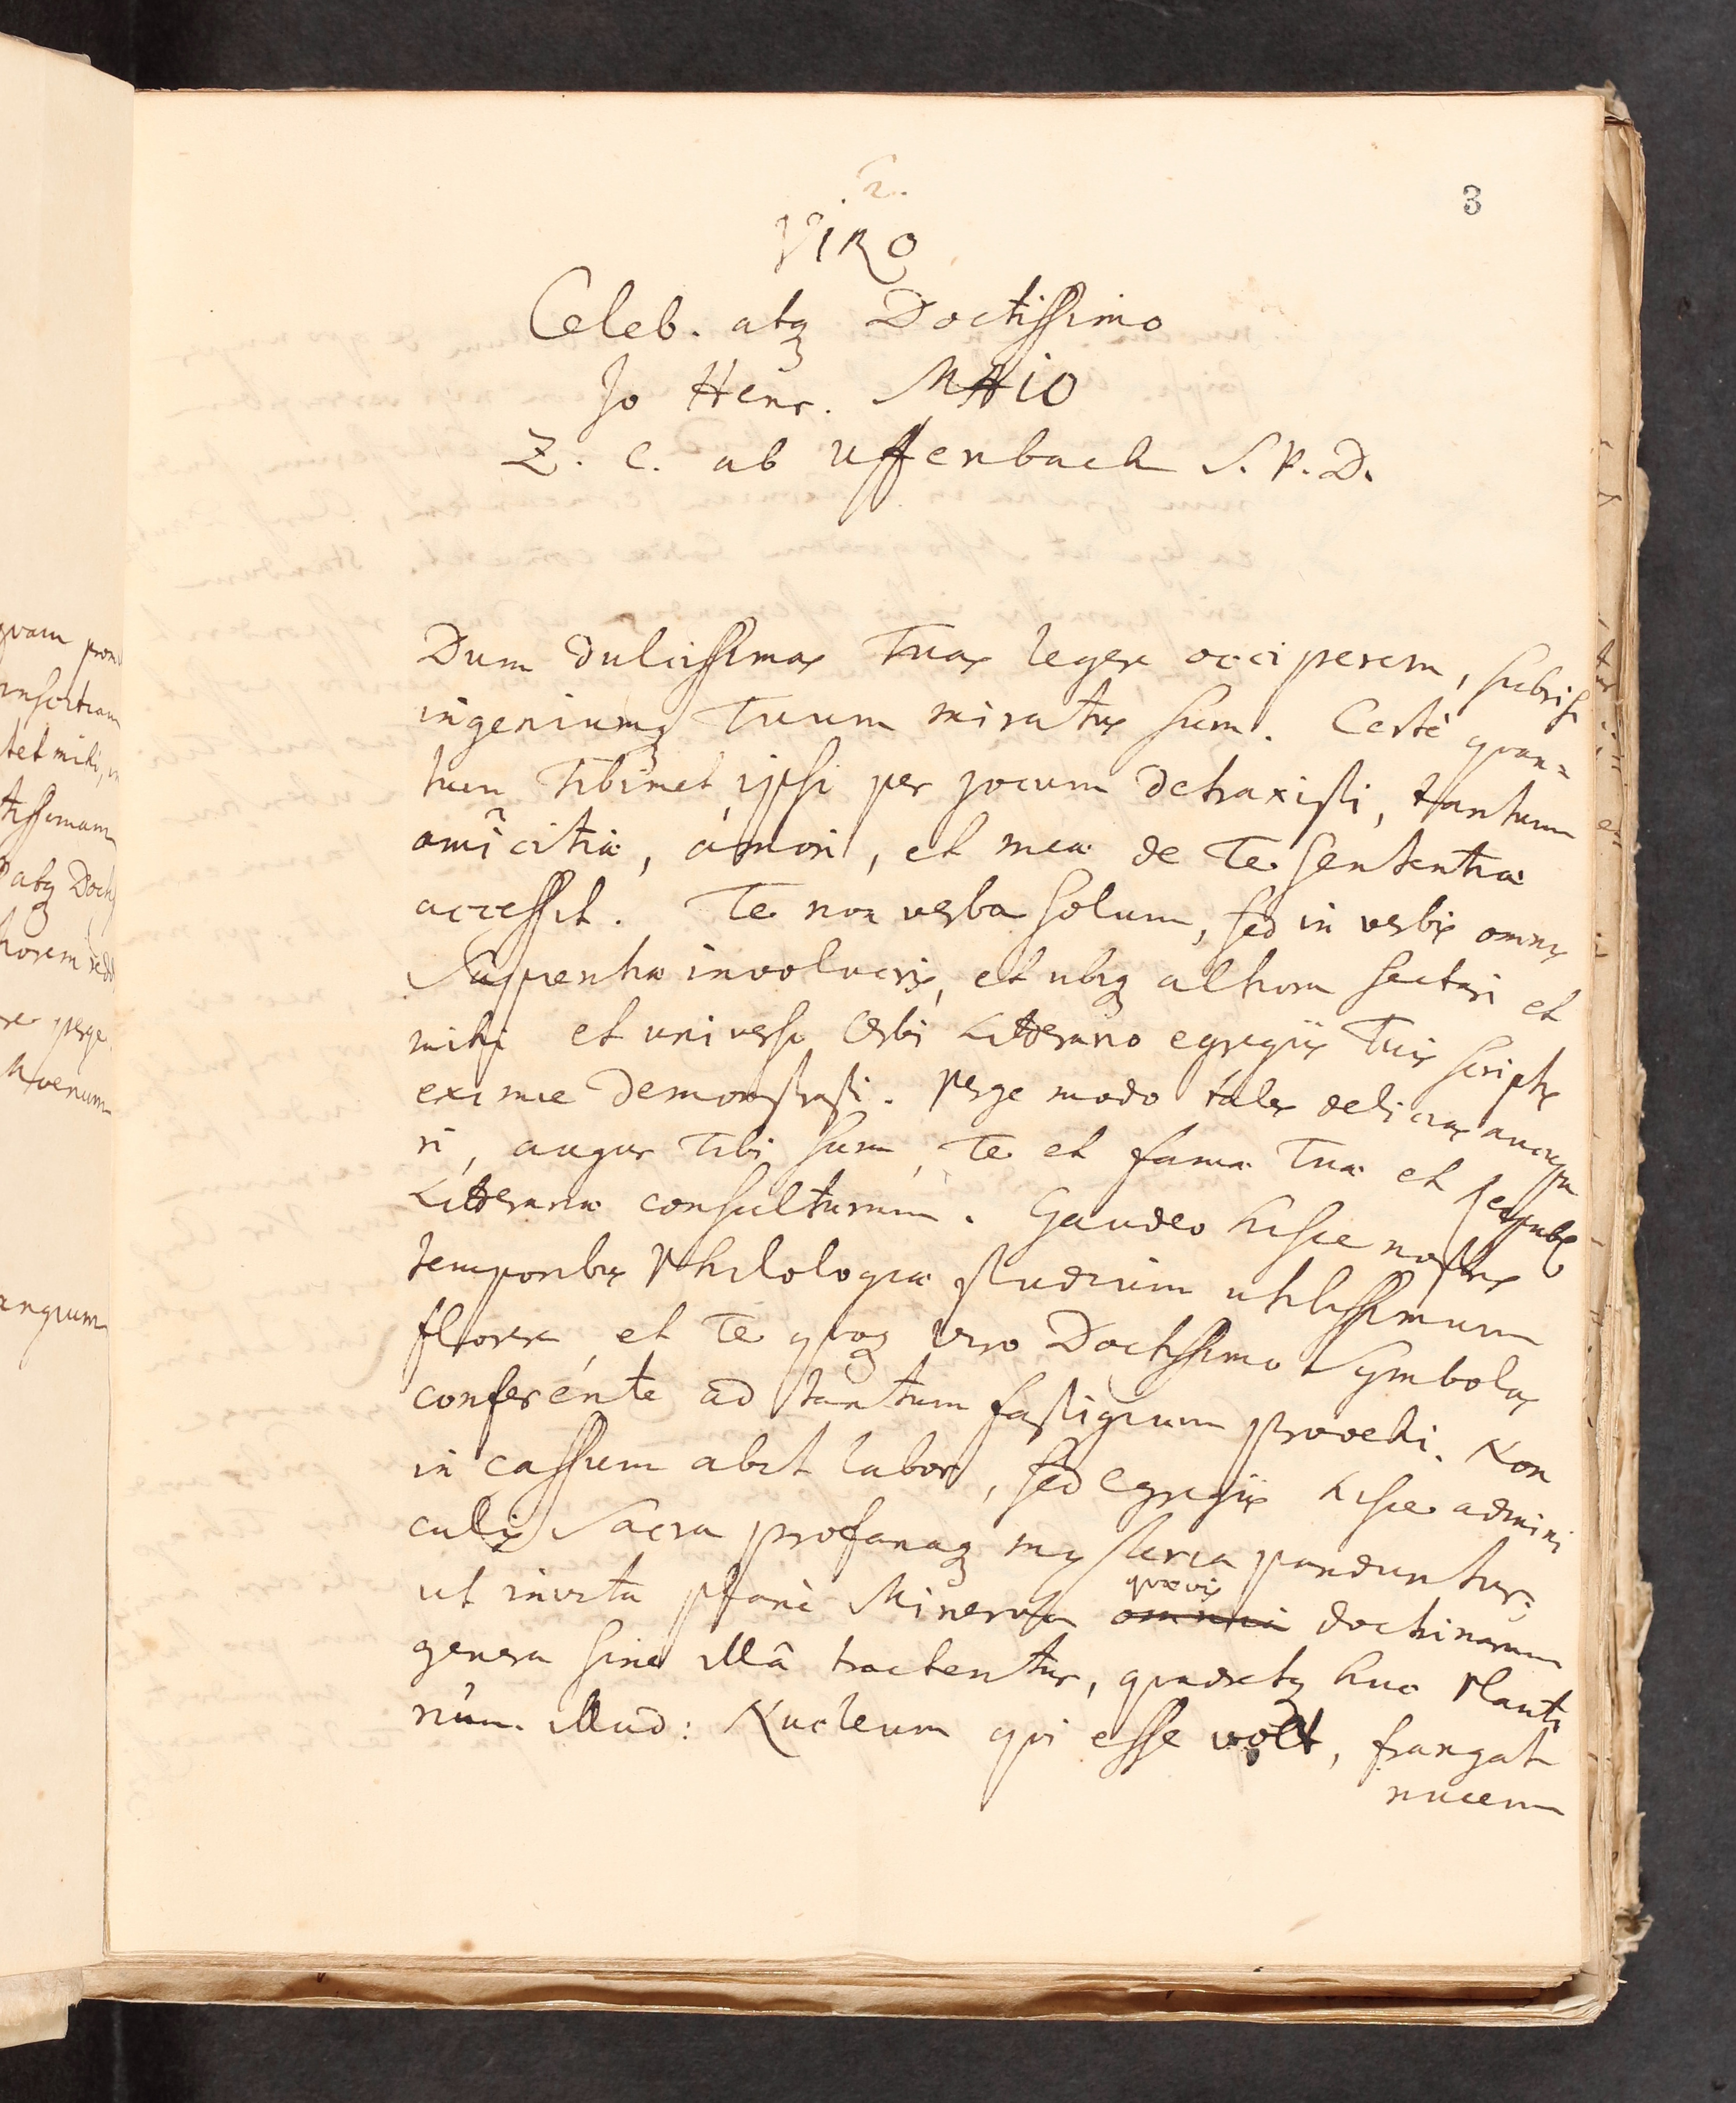 3
2.
VIRO
Celeb. atq; Doctissimo
Jo Henr. MAIO
Z. C. ab Uffenbach S. P. D.
Dum dulcissimas Tuas legere occiperem, subrisi
ingeniumq; Tuum miratus sum. Certè quan=
tum Tibimet ipsi per jocum detraxisti, tantum
amicitiæ, amori, et meæ de Te sententiæ
accessit. Te non verba solum, sed in verbis omnis
Sapientiæ involucris, et ubiq; altiora sectari et
mihi et universo Orbi Litterario egregiis Tuis scriptis
eximie demonstrasti. Perge modo tales delicias aucupa
ri, augur Tibi sum, Te et famæ Tuæ et Reipubl.
Litterariæ consulturum. Gaudeo hisce nostris
temporibus Philologiæ studium utilissimum
florere, et Te quoq; viro Doctissimo Symbolas
conferente ad tantum fastigium provehi. Non
in cassum abit labor, sed egregiis hisce admini
culis Sacra profanaq; mysteria panduntur,
ut invita planè Minerva quævis omnia doctrinarum
genera sine illâ tractentur, quadretq; huc Plauti
num illud: Nucleum qui esse volt, frangat
nucem
quam
tet mihi,
tissimam
atq; Doct
perge